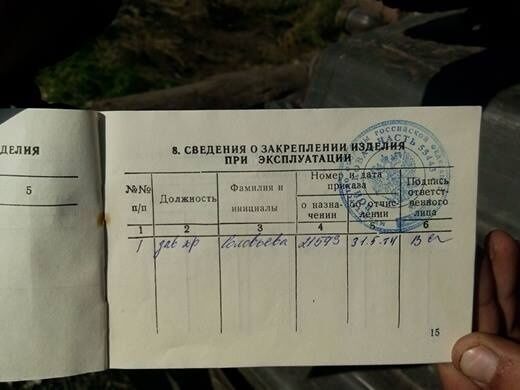 ДЕЛИЯ
5
8. СВЕДЕНИЯ О ЗАКРЕПЛЕНИИ ИЗДЕЛИЯ
ПРИ ЭКСПЛУАТАЦИИ
№№ п/п
Должность
Фамилия и инициалы
Номер и дата приказа
о назна-чении
об отчис-лении
Подпись ответст-венного лица
1 2 3 4 5 6
1 зав хр Соловьева 31.5.14
15